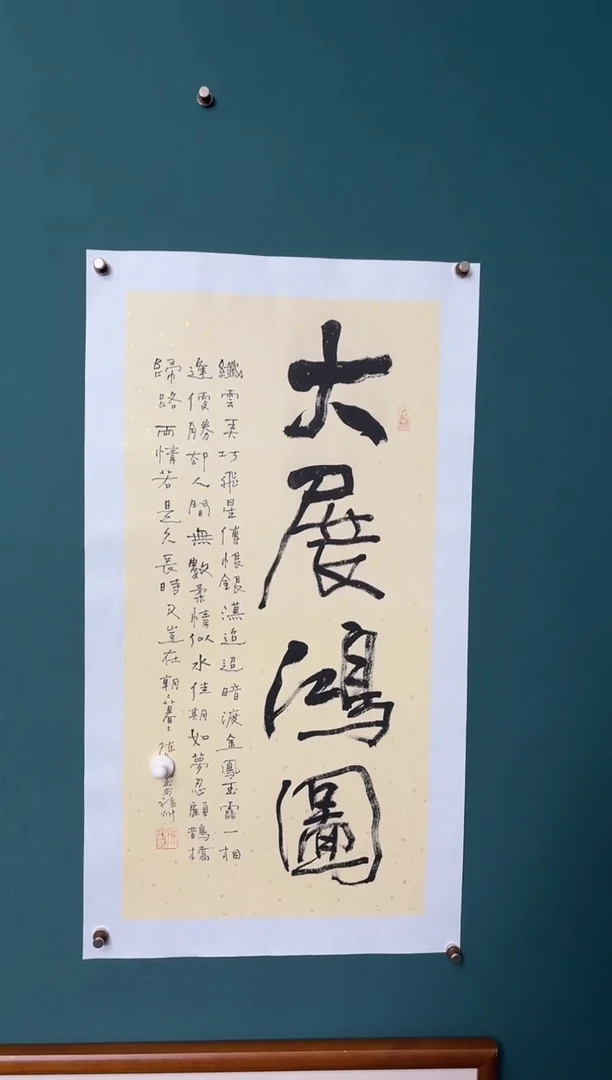 大展鴻圖
纖雲弄巧飛星傳恨銀漢迢迢暗渡金鳳玉露一相
逢便勝却人間無數柔情似水佳期如夢忍顧鵲橋
歸路兩情若是久長時又豈在朝〻暮〻 陳 福州